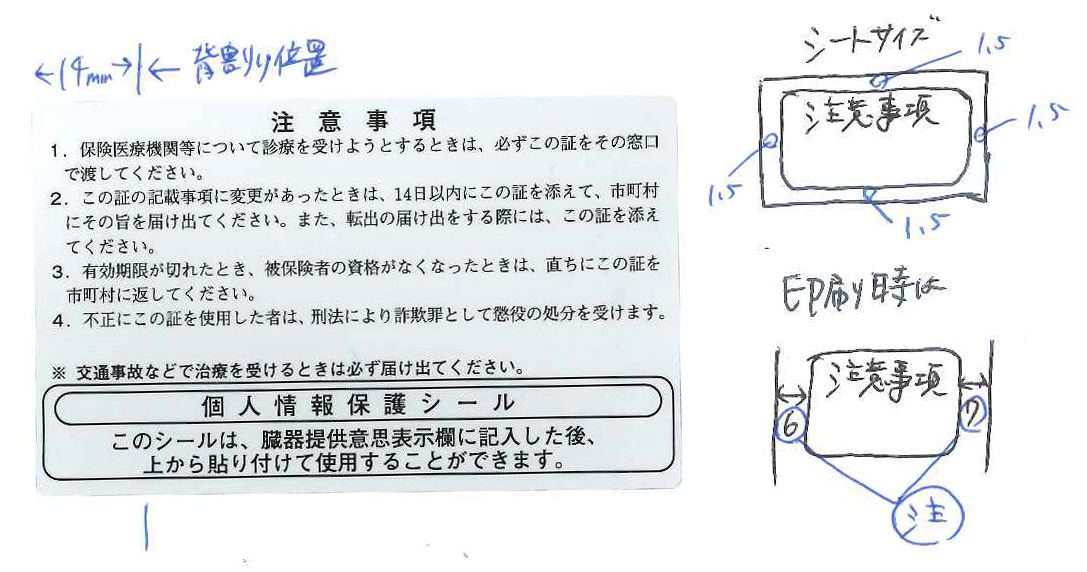 14mm
背割り位置
注意事項
1．保険医療機関等について診療を受けようとするときは、必ずこの証をその窓口
で渡してください。
2．この証の記載事項に変更があったときは、14日以内にこの証を添えて、市町村
にその旨を届け出てください。また、転出の届け出をする際には、この証を添え
てください。
3．有効期限が切れたとき、被保険者の資格がなくなったときは、直ちにこの証を
市町村に返してください。
4．不正にこの証を使用した者は、刑法により詐欺罪として懲役の処分を受けます。
※ 交通事故などで治療を受けるときは必ず届け出てください。
個人情報保護シール
このシールは、臓器提供意思表示欄に記入した後、
上から貼り付けて使用することができます。
シートサイズ
1.5
注意事項
1.5
1.5
1.5
印刷り時は
注意事項
⑥
⑦
注